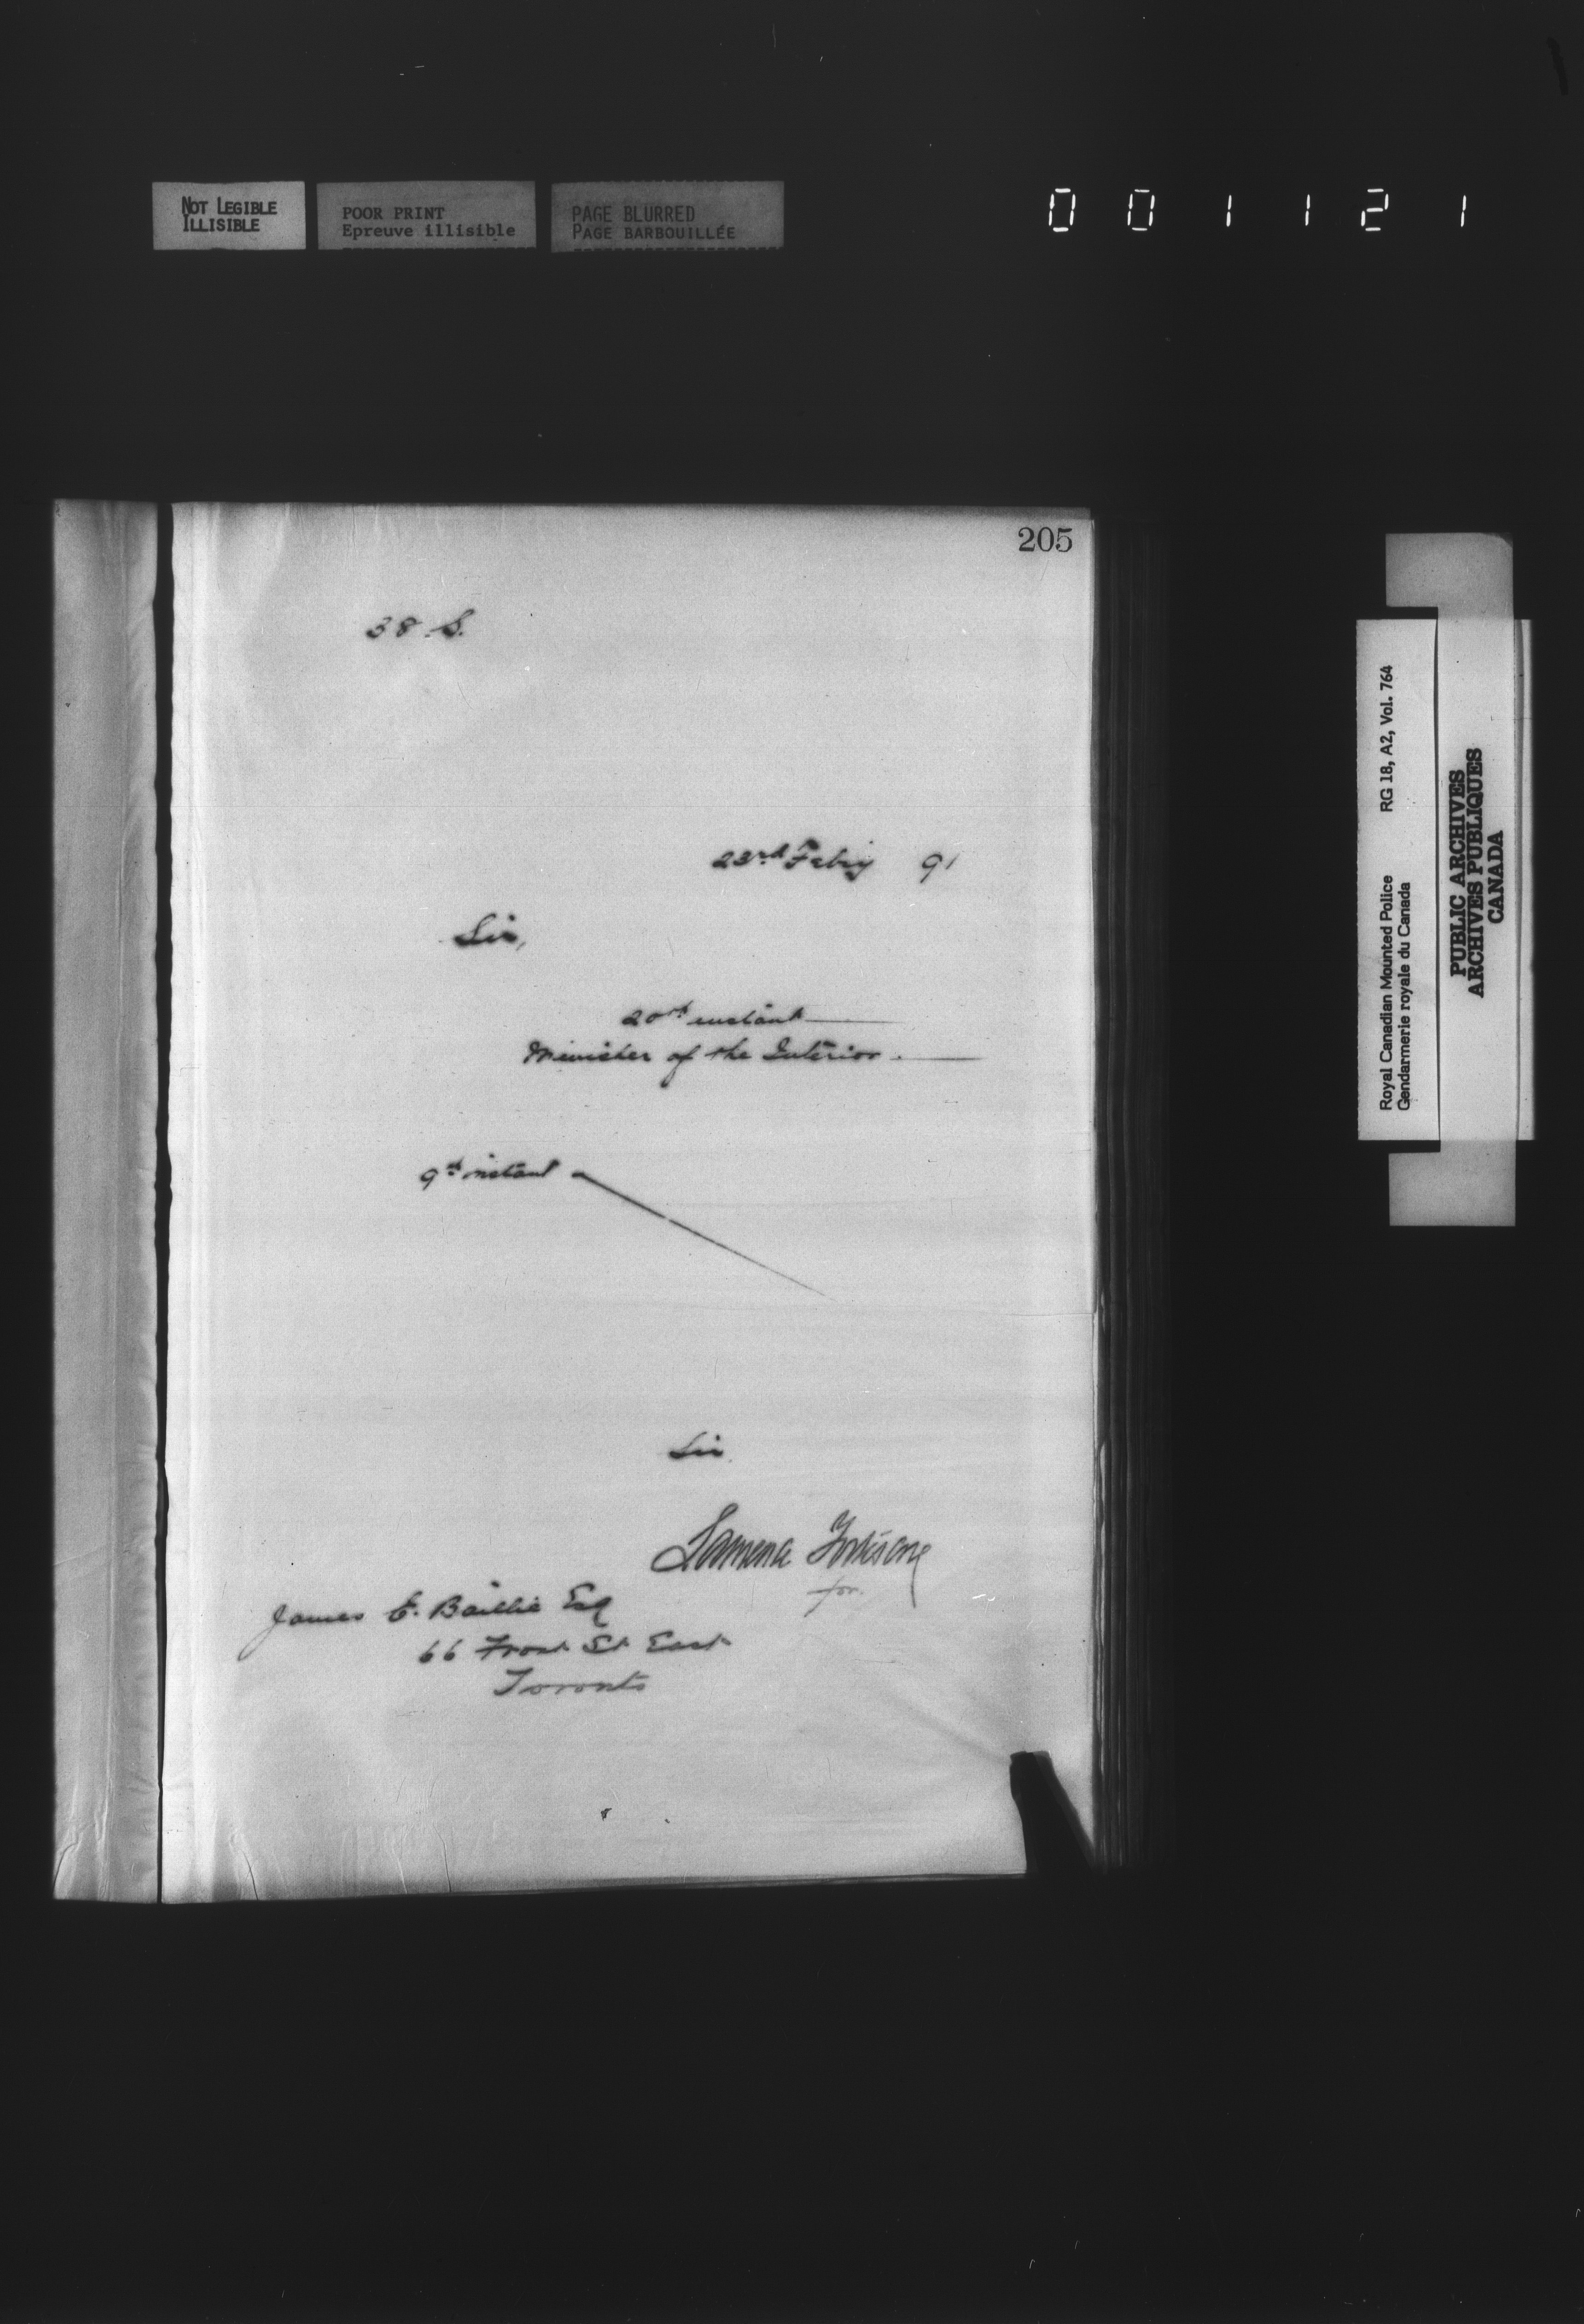 NOT LEGIBLE
ILLISIBLE
POOR PRINT
Epreuve illisible
PAGE BLURRED
PAGE BARBOUILLÉE
001121
205
38 S.
23rd Feby 91
Sir,
20th instant
Minister of the Interior.
9th instant
Sir
for.
James E. Baillie Esq
66 Front St East
Toronto
Royal Canadian Mounted Police RG 18, A2, Vol. 764
Gendarmerie royale du Canada
PUBLIC ARCHIVES
ARCHIVES PUBLIQUES
CANADA